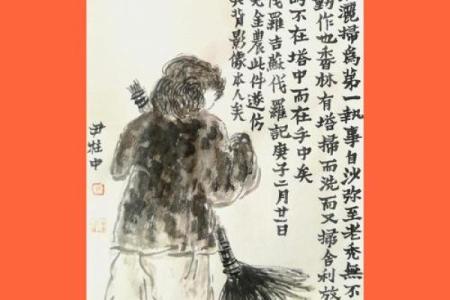 灑掃為第一執事自沙弥至老禿無不
勤作也香林有塔掃而洗而又掃舍利放
不在塔中而在手中矣
伐羅吉蘇伐羅記庚子二月廿一日
金農此件遂仿
背影像本人矣
尹柱中